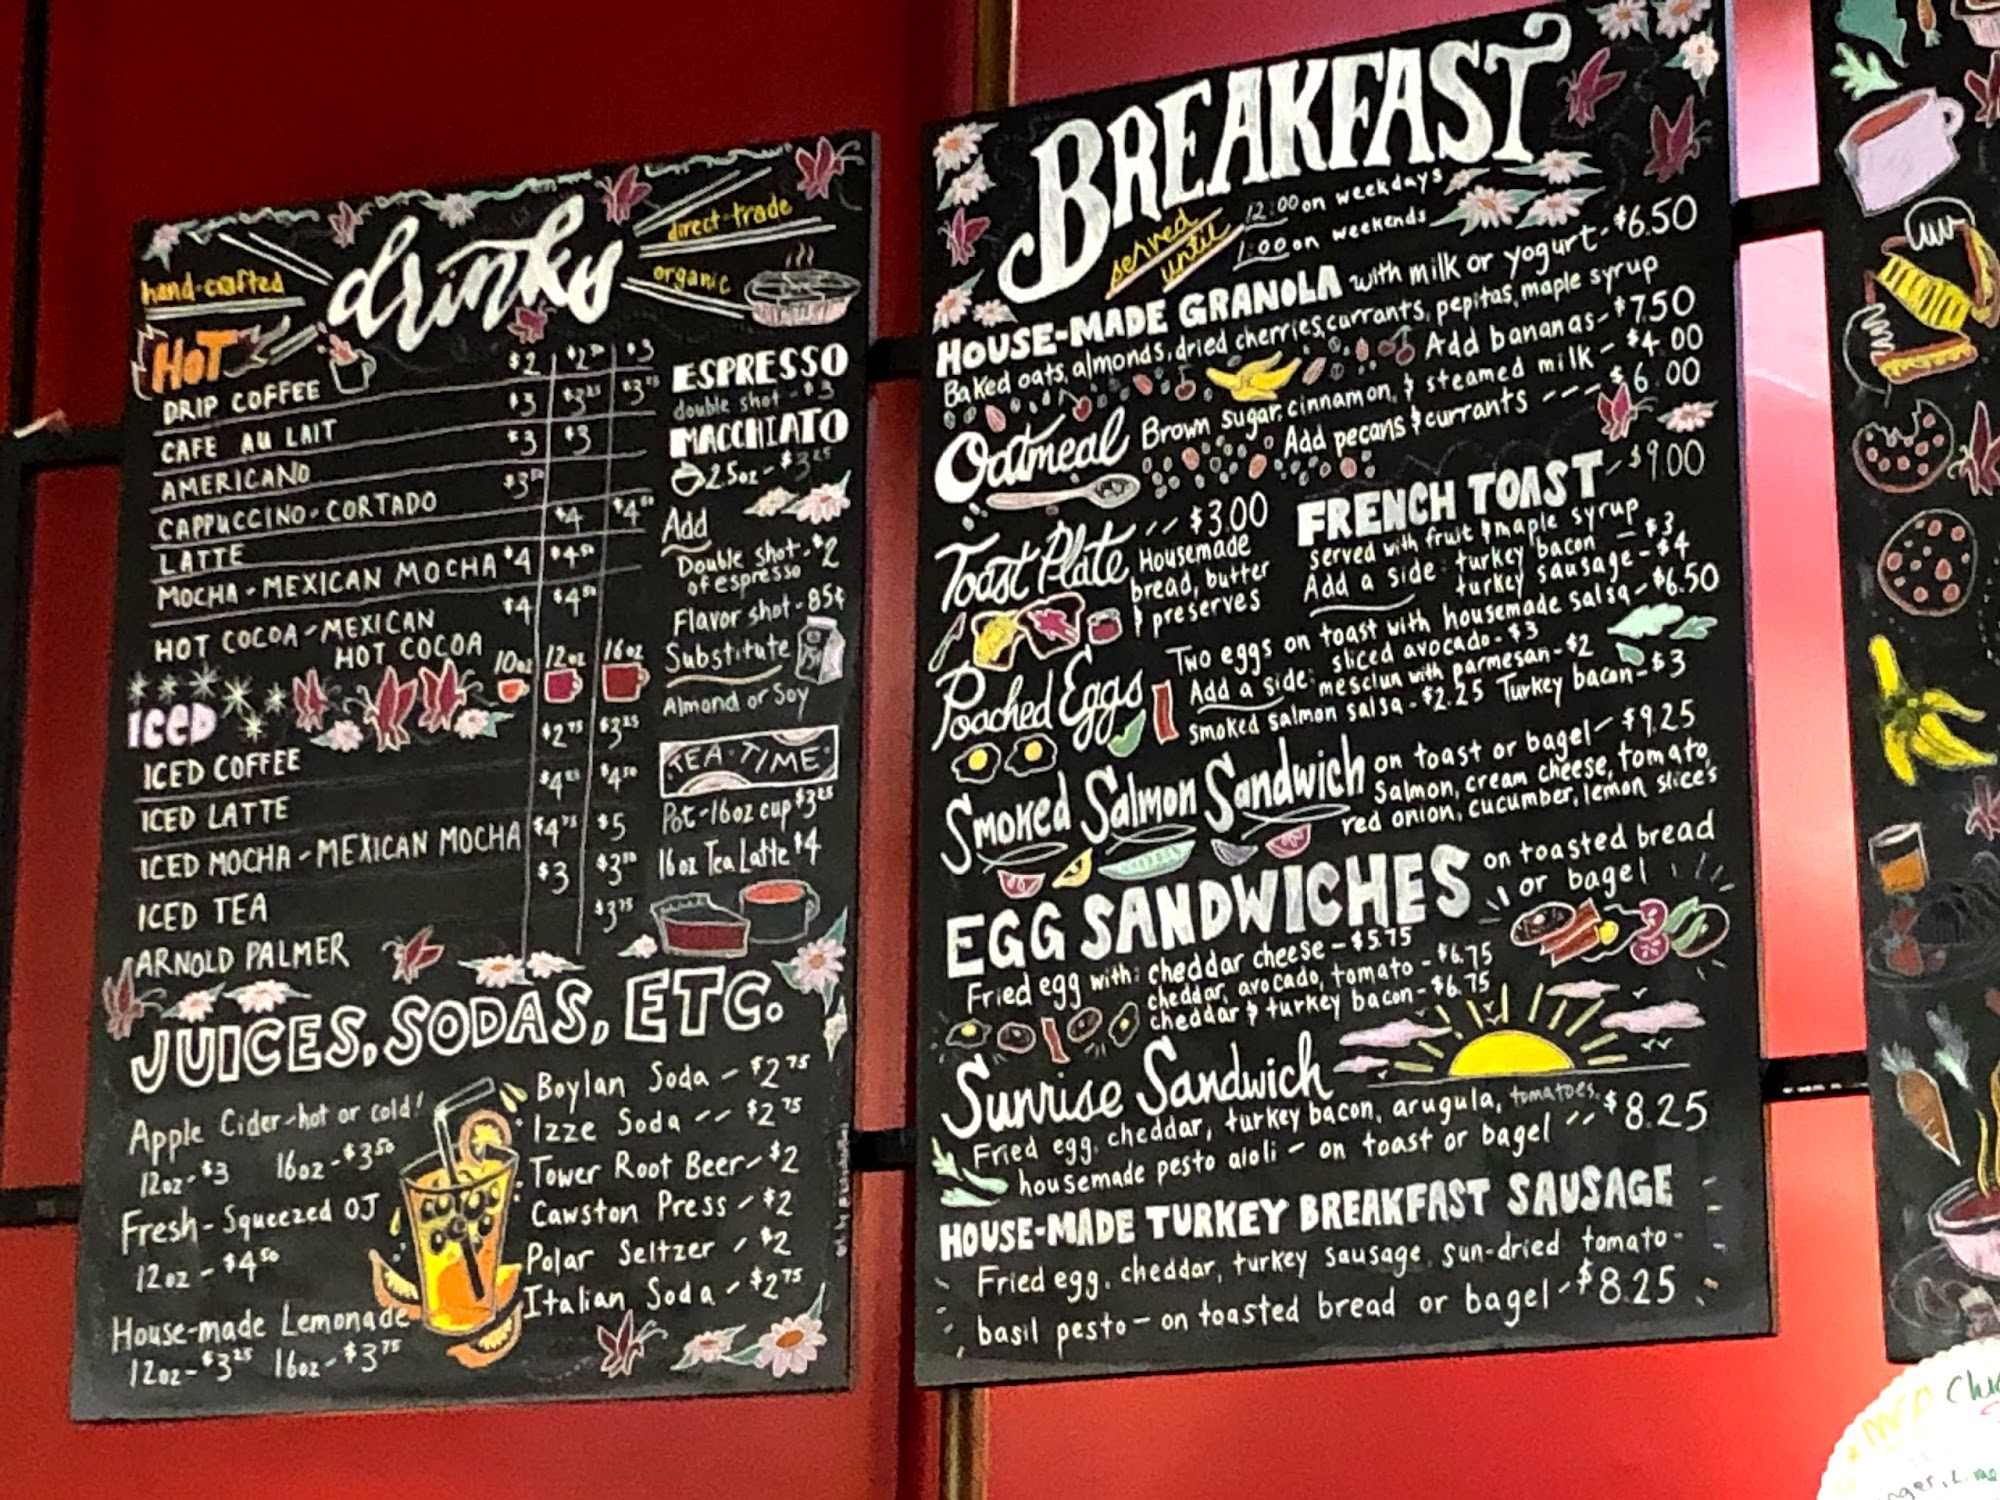 drinks
hand-crafted
direct-trade
organic
HOT
DRIP COFFEE $2 $2 $3
CAFE AU LAIT $3 $3.25 $3.75
AMERICANO $3 $3
CAPPUCCINO-CORTADO $3.50
LATTE $4 $4.50
MOCHA-MEXICAN MOCHA $4 $4.50
HOT COCOA-MEXICAN
HOT COCOA $4 $4.50
10oz 12oz 16oz
ICED
ICED COFFEE $2.75 $3.25
ICED LATTE $4.25 $4.50
ICED MOCHA-MEXICAN MOCHA $4.75 $5
ICED TEA $3 $3.50
ARNOLD PALMER $3.75
ESPRESSO
double shot - $3
MACCHIATO
2.5oz - $3.25
Add
Double shot - $2
of espresso
Flavor shot - 85¢
Substitute
75¢
Almond or Soy
TEA·TIME
Pot-16oz cup $3.25
16oz Tea Latte $4
JUICES, SODAS, ETC.
Apple Cider-hot or cold!
12oz-$3 16oz-$3.50
Fresh-Squeezed OJ
12oz - $4.50
House-made Lemonade
12oz-$3.25 16oz-$3.75
Boylan Soda - $2.75
Izze Soda -- $2.75
Tower Root Beer - $2
Cawston Press - $2
Polar Seltzer - $2
Italian Soda - $2.75
BREAKFAST
served
until
12:00 on weekdays
1:00 on weekends
HOUSE-MADE GRANOLA with milk or yogurt - $6.50
Baked oats, almonds, dried cherries, currants, pepitas, maple syrup
Add bananas - $7.50
Oatmeal Brown sugar, cinnamon, & steamed milk - $4.00
Add pecans & currants --- $6.00
Toast Plate -- $3.00
Housemade
bread, butter
& preserves
FRENCH TOAST - $9.00
served with fruit & maple syrup
Add a side: turkey bacon - $3
turkey sausage - $4
Poached Eggs Two eggs on toast with housemade salsa - $6.50
Add a side: sliced avocado - $3
mesclun with parmesan - $2
smoked salmon salsa - $2.25 Turkey bacon - $3
Smoked Salmon Sandwich on toast or bagel - $9.25
Salmon, cream cheese, tomato,
red onion, cucumber, lemon slice's
EGG SANDWICHES on toasted bread
or bagel
Fried egg with: cheddar cheese - $5.75
cheddar, avocado, tomato - $6.75
cheddar & turkey bacon - $6.75
Sunrise Sandwich
Fried egg, cheddar, turkey bacon, arugula, tomatoes,
housemade pesto aioli - on toast or bagel -- $8.25
HOUSE-MADE TURKEY BREAKFAST SAUSAGE
Fried egg, cheddar, turkey sausage, sun-dried tomato-
basil pesto - on toasted bread or bagel - $8.25